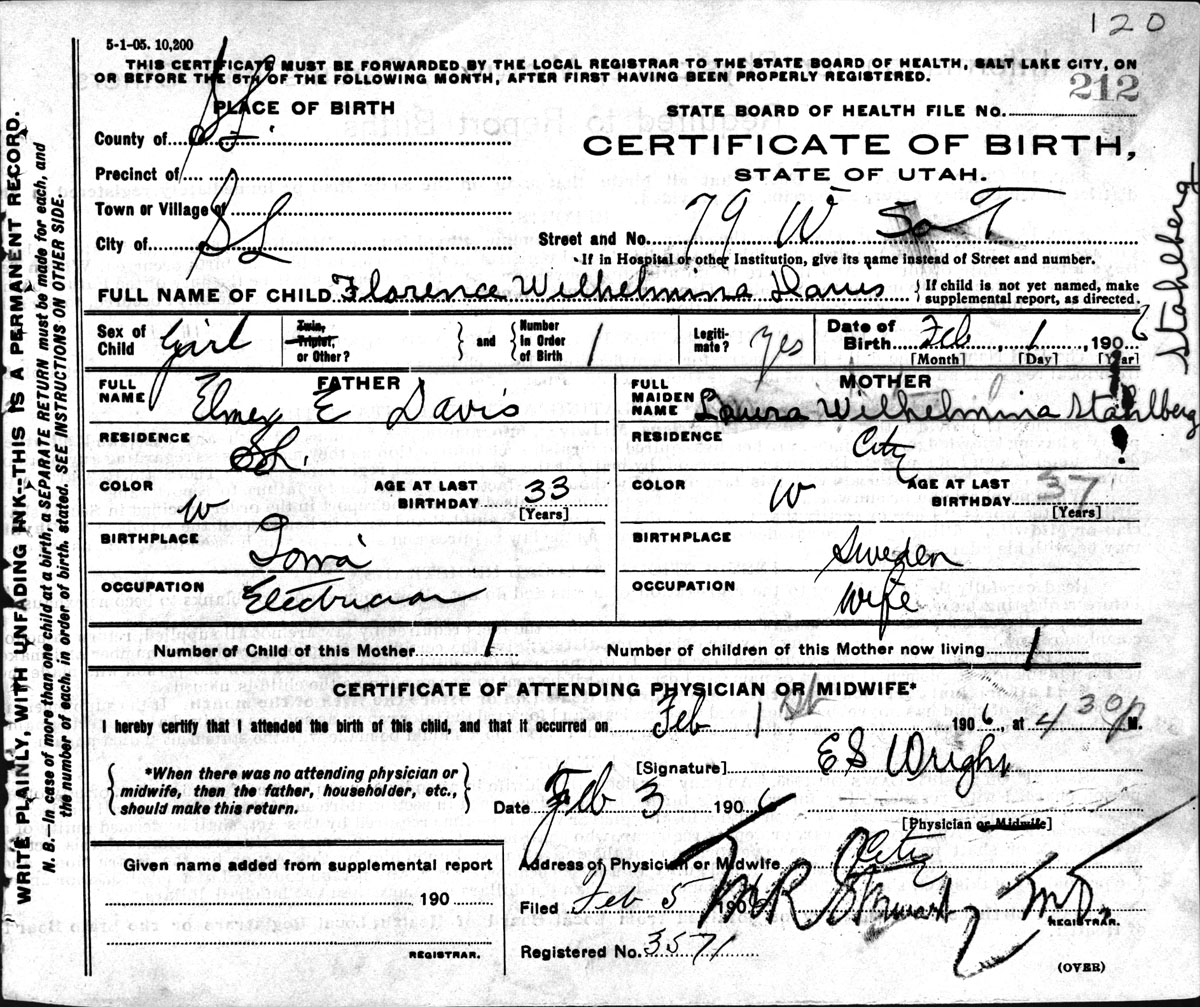 120
5-1-05. 10,200
THIS CERTIFICATE MUST BE FORWARDED BY THE LOCAL REGISTRAR TO THE STATE BOARD OF HEALTH, SALT LAKE CITY, ON
OR BEFORE THE 5TH OF THE FOLLOWING MONTH, AFTER FIRST HAVING BEEN PROPERLY REGISTERED.
212
PLACE OF BIRTH
STATE BOARD OF HEALTH FILE No.
County of S L
CERTIFICATE OF BIRTH,
Precinct of
STATE OF UTAH.
Town or Village of
City of S L
Street and No. 79 W So T
If in Hospital or other Institution, give its name instead of Street and number.
FULL NAME OF CHILD Florence Wilhelmina Davis { If child is not yet named, make supplemental report, as directed.
Stahlberg
Sex of Child Girl Twin, Triplet, or Other? } and { Number In Order of Birth 1 Legiti-mate? Yes Date of Birth Feb , 1 , 1906
[Month] [Day] [Year]
FATHER
FULL NAME Elmer E Davis
RESIDENCE S L.
COLOR W AGE AT LAST BIRTHDAY 33 [Years]
BIRTHPLACE Iowa
OCCUPATION Electrician
MOTHER
FULL MAIDEN NAME Laura Wilhelmina Stahlberg
RESIDENCE City
COLOR W AGE AT LAST BIRTHDAY 37 [Years]
BIRTHPLACE Sweden
OCCUPATION Wife
Number of Child of this Mother 1 Number of children of this Mother now living 1
CERTIFICATE OF ATTENDING PHYSICIAN OR MIDWIFE*
I hereby certify that I attended the birth of this child, and that it occurred on Feb 1 1906, at 4 30 p M.
{ *When there was no attending physician or midwife, then the father, householder, etc., should make this return. }
[Signature] E S Wright
Date Feb 3 1906
[Physician or Midwife]
Given name added from supplemental report
190
REGISTRAR.
Address of Physician or Midwife City
Filed Feb 5 1906 M R Stewart M D.
REGISTRAR.
Registered No. 3571
(OVER)
WRITE PLAINLY, WITH UNFADING INK--THIS IS A PERMANENT RECORD.
N. B.—In case of more than one child at a birth, a SEPARATE RETURN must be made for each, and
the number of each, in order of birth, stated. SEE INSTRUCTIONS ON OTHER SIDE.